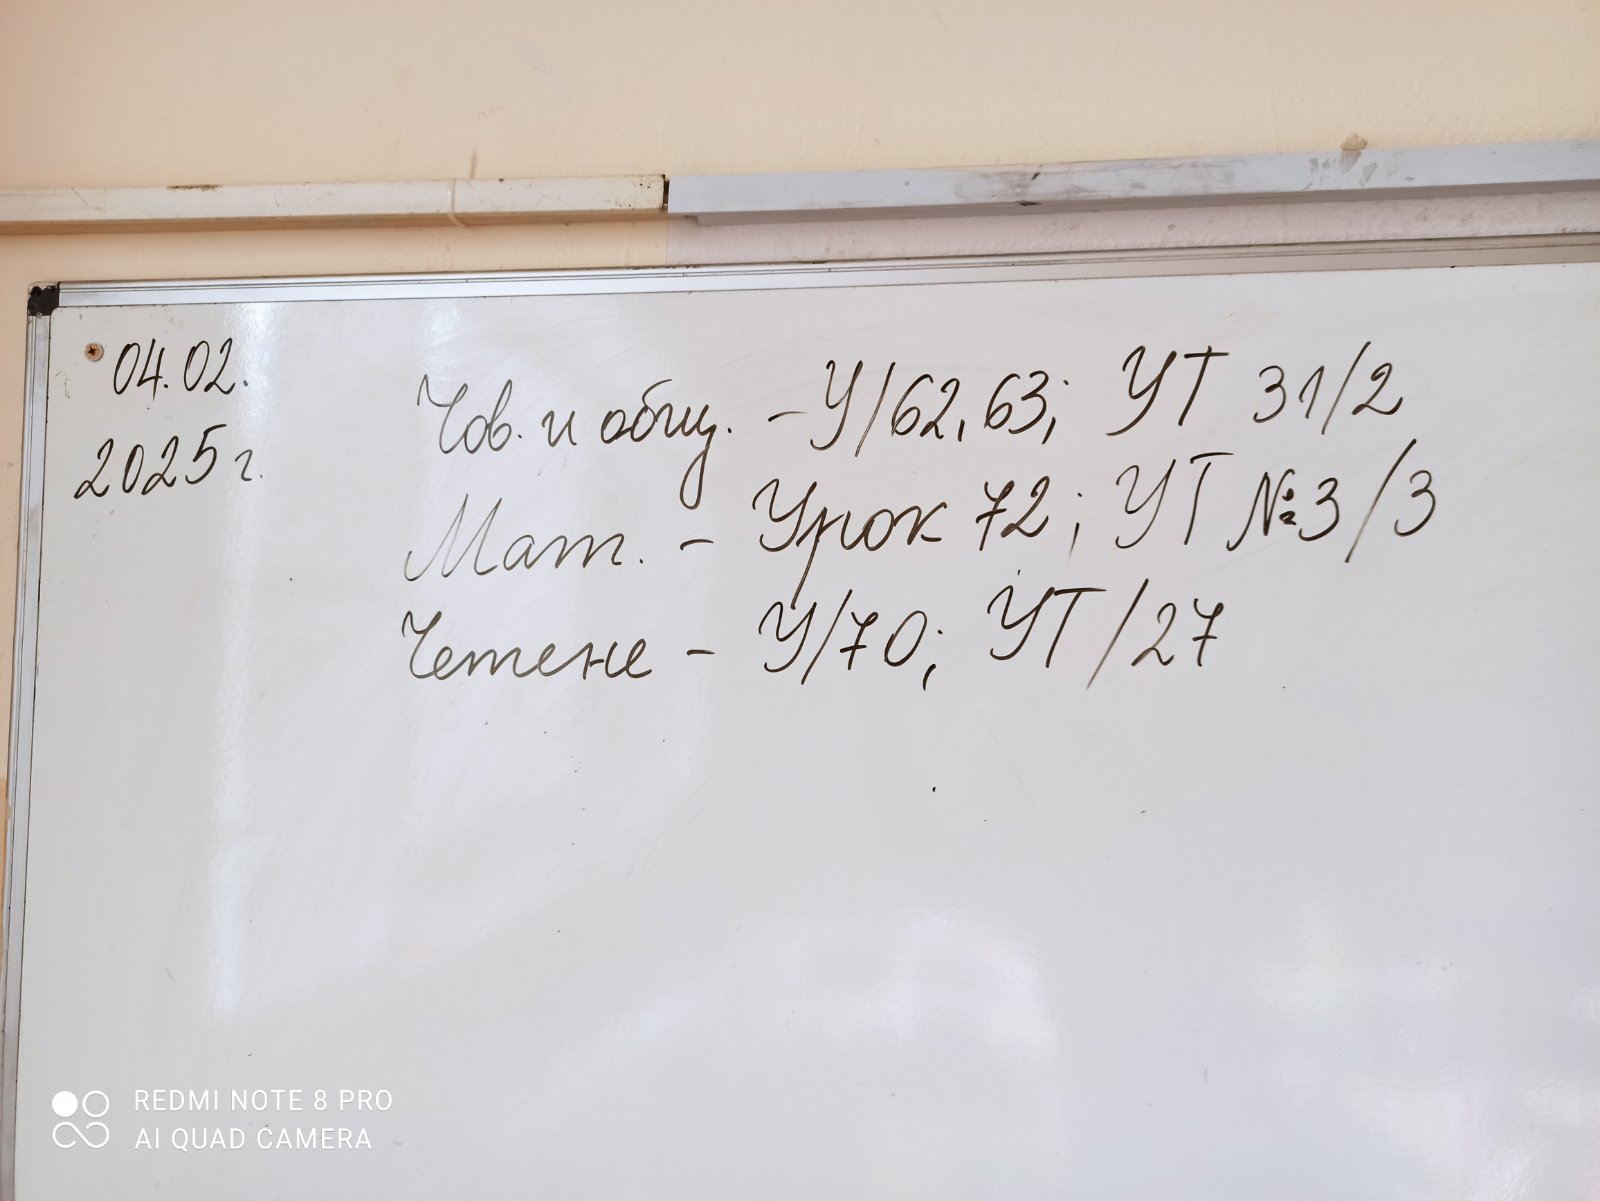 04.02.
2025 г.
Чов. и общ. - У/62,63; УТ 31/2
Мат. - Урок 72; УТ №3/3
Четене - У/70; УТ/27
REDMI NOTE 8 PRO
AI QUAD CAMERA